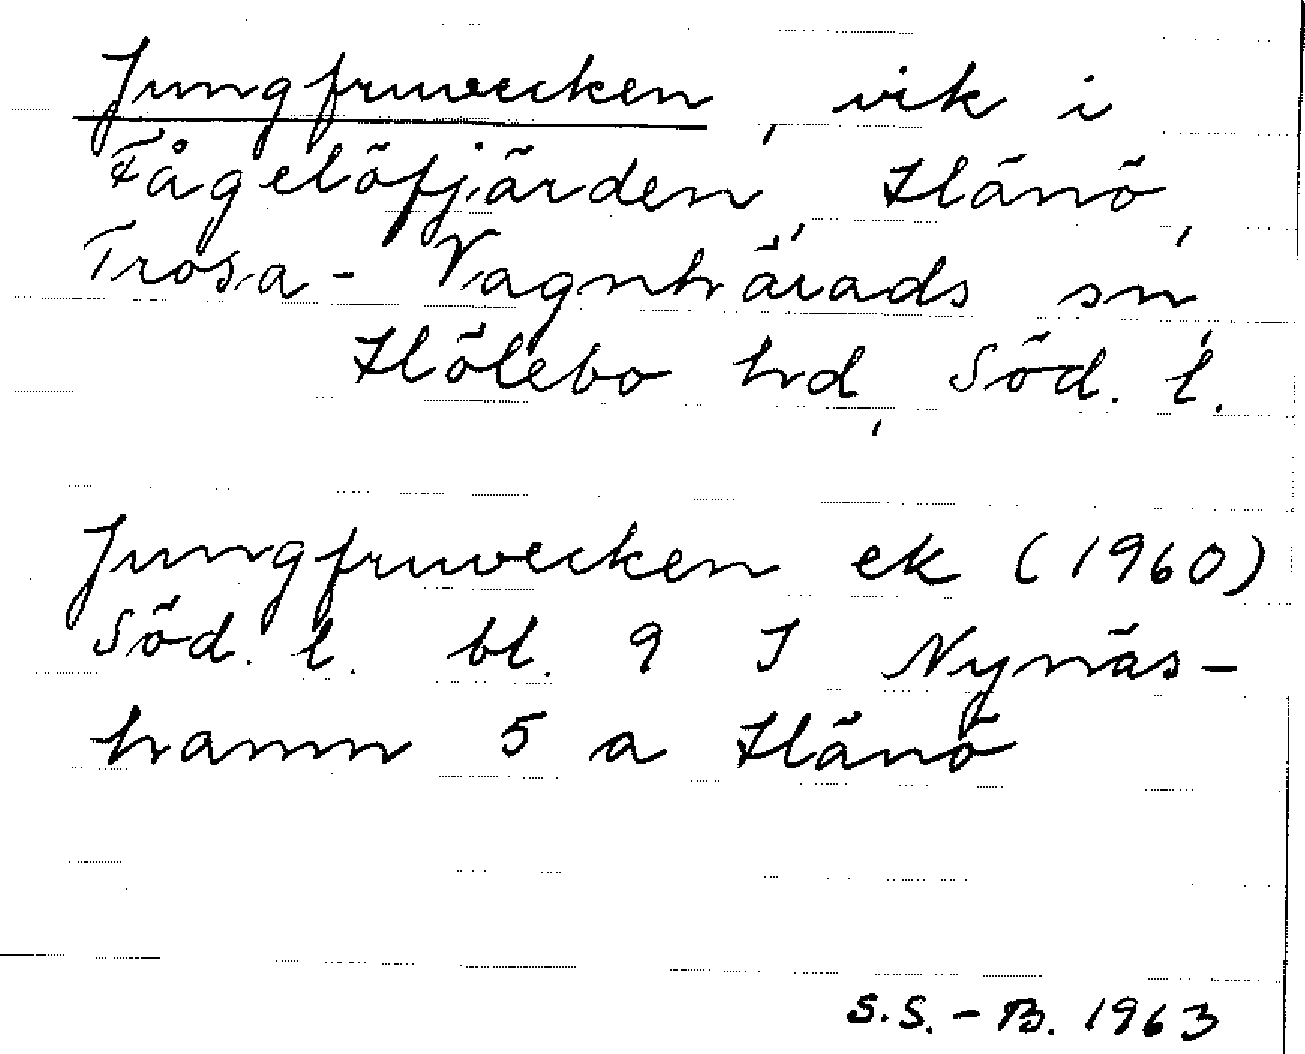 Jungfruvecken, vik i
Fågelöfjärden, Hänö,
Trosa-Vagnhärads sn,
Hölebo hd, Söd. l.
Jungfruvecken ek (1960)
Söd. l. bl. 9 I Nynäs-
hamn 5 a Hånö
S.S.-B. 1963